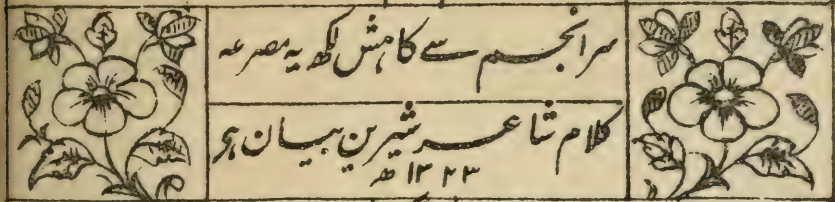 سر انجم سے کاہش لکھ یہ مصرعہ
کلام شاعر شیرین بیان ہی
۱۳۲۳ھ